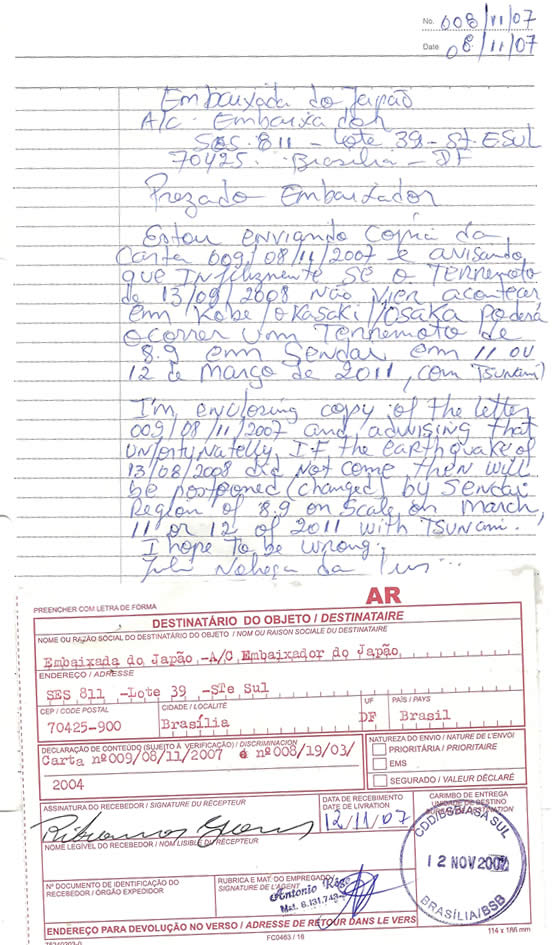 No. 008/11/07
Date 08/11/07
Embaixada do Japão
A/c Embaixador
SES 811 - Lote 39 - St. E SUL
70425. Brasília - DF
Prezado Embaixador
Estou enviando copia da
Carta 009/08/11/2007 e avisando
que Infelizmente se o Terremoto
de 13/09/2008 Não vier acontecer
em Kobe/Okasaki/Osaka poderá
ocorrer um Terremoto de
8.9 em Sendai em 11 ou
12 de março de 2011, com Tsunami
I'm enclosing copy of the letter
009/08/11/2007 and advising that
unfortunatelly, If the earthquake of
13/08/2008 did not come then will
be postponed (changed) by Sendai
Region of 8.9 on Scale on March,
11 or 12 of 2011 with Tsunami.
I hope to be wrong.
da Luz
AR
PREENCHER COM LETRA DE FORMA
DESTINATÁRIO DO OBJETO / DESTINATAIRE
NOME OU RAZÃO SOCIAL DO DESTINATÁRIO DO OBJETO / NOM OU RAISON SOCIALE DU DESTINATAIRE
Embaixada do Japão -A/C Embaixador do Japão
ENDEREÇO / ADRESSE
SES 811 -Lote 39 -STe Sul
CEP / CODE POSTAL CIDADE / LOCALITÉ UF PAÍS / PAYS
70425-900 Brasília DF Brasil
DECLARAÇÃO DE CONTEÚDO (SUJEITO À VERIFICAÇÃO) / DISCRIMINACION
Carta nº009/08/11/2007 e nº008/19/03/
2004
NATUREZA DO ENVIO / NATURE DE L'ENVOI
PRIORITÁRIA / PRIORITAIRE
EMS
SEGURADO / VALEUR DÉCLARÉ
ASSINATURA DO RECEBEDOR / SIGNATURE DU RÉCEPTEUR
DATA DE RECEBIMENTO
DATE DE LIVRATION
12/11/07
CARIMBO DE ENTREGA
UNIDADE DE DESTINO
CDD/BSB/ASA SUL
12 NOV 2007
BRASÍLIA/BSB
NOME LEGÍVEL DO RECEBEDOR / NOM LISIBLE DU RÉCEPTEUR
Nº DOCUMENTO DE IDENTIFICAÇÃO DO
RECEBEDOR / ÓRGÃO EXPEDIDOR
RUBRICA E MAT. DO EMPREGADO /
SIGNATURE DE L'AGENT
Antonio
Mat. 8.131.743
ENDEREÇO PARA DEVOLUÇÃO NO VERSO / ADRESSE DE RETOUR DANS LE VERS
75240203-0 FC0463 / 16 114 x 186 mm